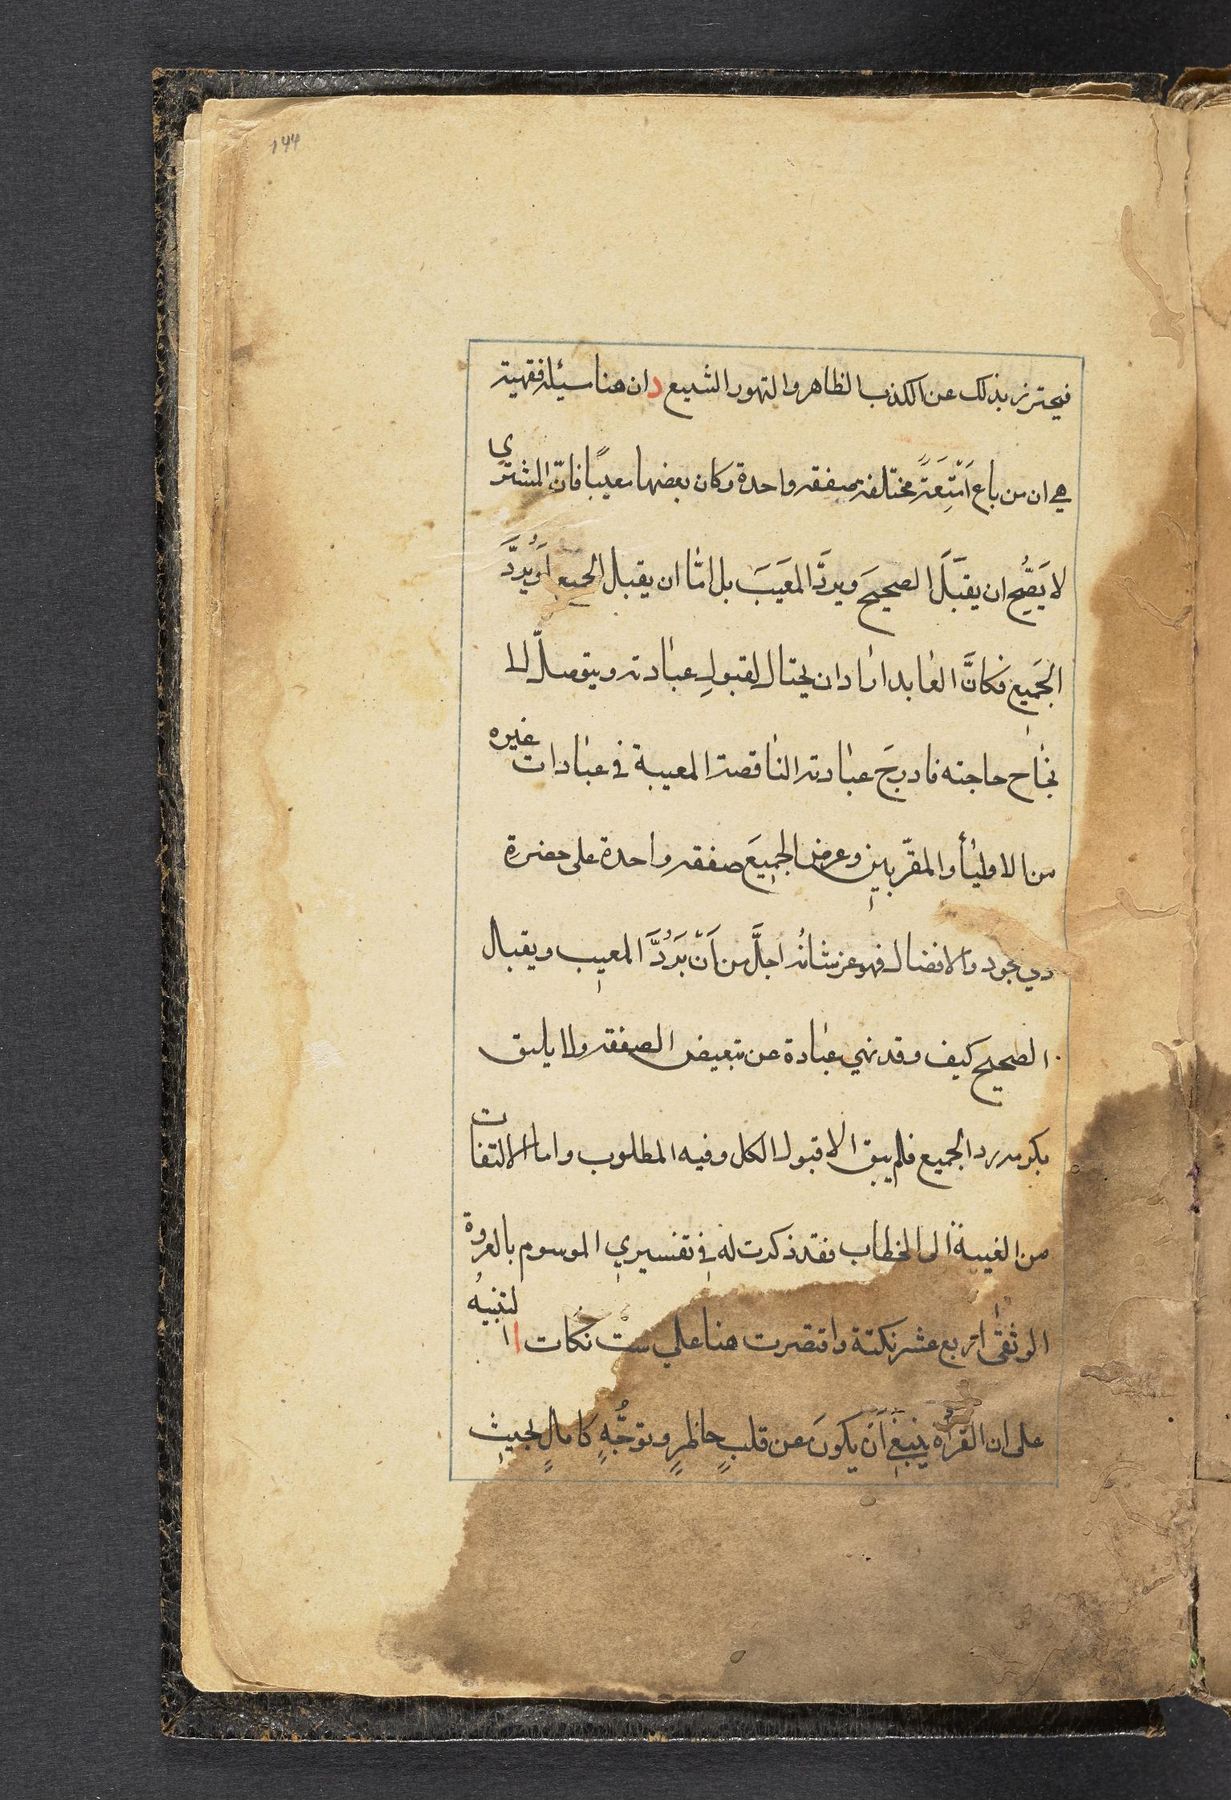 ١٤٤
فيحترز بذلك عن الكذب الظاهر والتهور الشنيع د ان هنا مسئلة فقهية
هي ان من باع اَمْتِعَةً مختلفة صفقه واحدة وكان بعضها معيبًا فانّ المشتري
لا يَصِّح ان يقبَلَ الصحيحَ ويردَّ المعَيَبَ بل امّا ان يقبل الجميع اَويُردَّ
الجَميع فكانَّ العابد اراد ان يحتال لقبولِ عبادته ويتوصلّ الى
نجاح حاجته فادرجَ عبادته الناقصة المعيبة في عبادات غيره
من الاوليأ والمقرّبين وعرض الجميعَ صفقه واحدة على حضرة
ذي الجود والافضال فهو عز شانُه اجلَّ من اَنْ يَرُدَّ المعيب ويقبال
الصحيح كيف وقد نهي عبادة عن تبعيض الصفقه ولا يليق
بكرمه رد الجميع فلم يبق الا قبول الكل وفيه المطلوب واما الالتفات
من الغيبة الى الخطاب فقد ذكرت له في تفسيري الموسوم بالعروة
الوثقى اربع عشر نكتة واقتصرت هنا علي ست نكات ا لتنبيهُ
على ان القراه ينبغي اَن يكونَ عن قلبٍ حاظرٍ وتوجُّهٍ كامالٍ بحيثِ